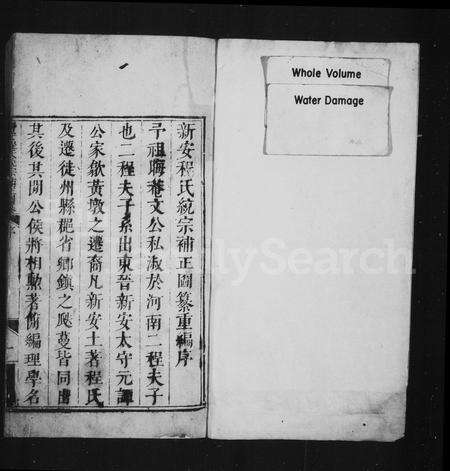 新安程氏統宗補正圖纂重編序
予祖晦菴文公私淑於河南二程夫子
也二程夫子系出東晉新安太守元譚
公家歙黃墩之遷裔凡新安土著程氏
及遷徙州縣郡省鄉鎮之蔓皆同
其後其開公侯將相勲著簡編理學名
Whole Volume
Water Damage
FamilySearch